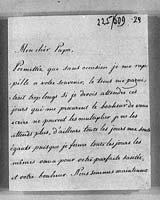 225/609 29
Mon cher Papa,
Permettez que sans occasion je me rap-
pelle à votre souvenir, le tems me parois-
sait trop long si je devois attendre ces
jours qui me procurent le bonheur de vous
écrire ne peuvent les multiplier, je ne les
attends plus, d'ailleurs toute les jours me sont
égaux puisque je forme toute les jours les
mêmes vœux pour votre parfaite santé,
et votre bonheur. Nous sommes maintenant